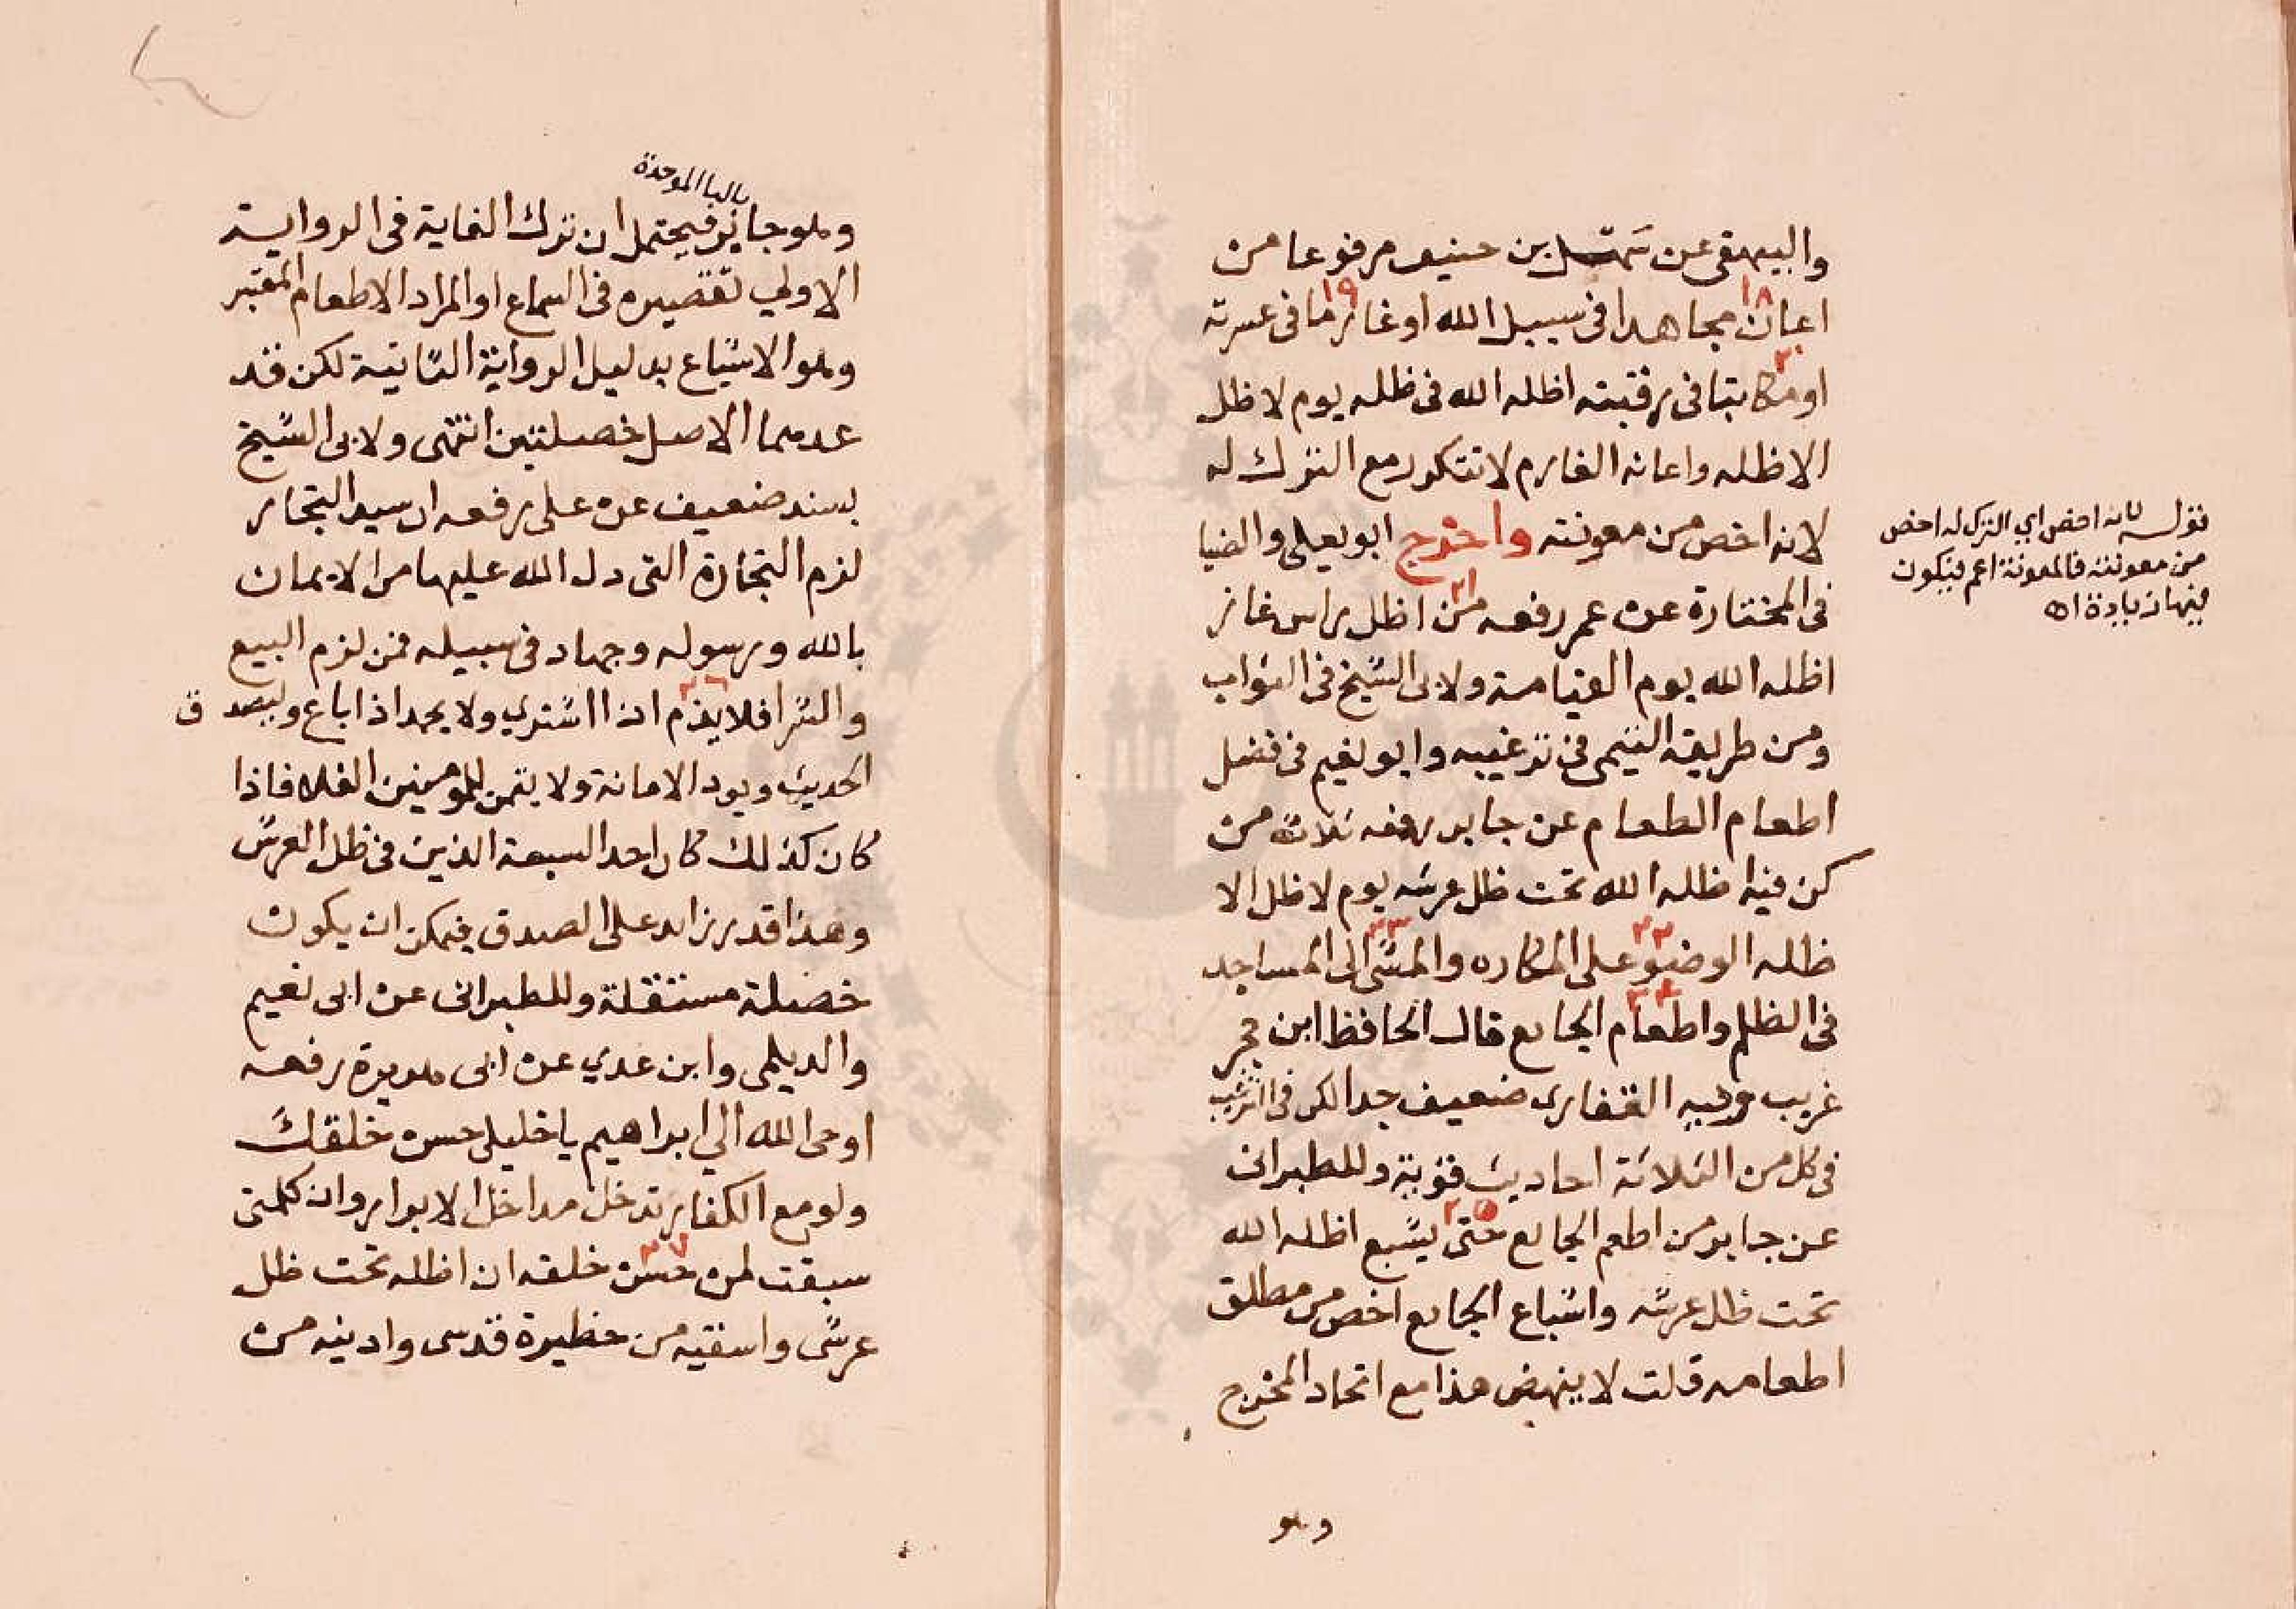 والبيهقي عن سهل بن حنيف مرفوعا من
اعان مجاهدا في سبيل الله او غارما في عسرته
١٨ ١٩
او مكاتبا في رقبته اظله الله في ظله يوم لا ظل
٢٠
الا ظله واعانه الغارم لا تتكرر مع الترك له
لانه اخص من معونته واخرج ابو يعلى والضيا
في المختارة عن عمر رفعه من اظل راس غاز
٢١
اظله الله يوم القيامة ولابي الشيخ في الثواب
ومن طريقه التيمي في ترغيبه وابو نعيم في فضل
اطعام الطعام عن جابر رفعه ثلاثة من
كن فيه اظله الله تحت ظل عرشه يوم لا ظل الا
ظله الوضو على المكاره والمشي الى المساجد
٢٢ ٢٣
في الظلم واطعام الجايع قال الحافظ ابن حجر
٢٤
غريب وفيه الغفاري ضعيف جدا لكن في الترغيب
في كل من الثلاثة احاديث قوية وللطبراني
عن جابر من اطعم الجايع حتى يشبع اظله الله
٢٥
تحت ظل عرشه واشباع الجايع اخص من مطلق
اطعامه قلت لا ينهض هذا مع اتحاد المخرج
وهو
قوله لانه اخص اي الترك له اخص
من معونته فالمعونة اعم فيكون
فيها زيادة اه
بالبا الموحدة
وهو جابر فيحتمل ان ترك الغاية في الرواية
الاولي تقصيره في السماع او المراد الاطعام المعتبر
وهو الاشباع بدليل الرواية الثانية لكن قد
عدهما الاصل خصلتين انتهى ولابي الشيخ
بسند ضعيف عن على رفعه ان سيد التجار
لزم التجارة التى دل الله عليها من الايمان
بالله ورسوله وجهاد في سبيله فمن لزم البيع
والشرا فلا يذم اذا اشتري ولا يحمد اذا باع وليصدق
٢٦
الحديث ويود الامانة ولا يتمن للمومنين الغلا فاذا
كان كذلك كان احد السبعة الذين في ظل العرش
وهذا قدر زايد على الصدق فيمكن ان يكون
خصلة مستقلة وللطبراني عن ابى نعيم
والديلمى وابن عدي عن ابى هريرة رفعه
اوحى الله الي ابراهيم يا خليلى حسن خلقك
ولو مع الكفار تدخل مداخل الابرار وان كلمتى
سبقت لمن حسن خلقه ان اظله تحت ظل
٢٧
عرشى واسقيه من حظيرة قدسى وادنيه من